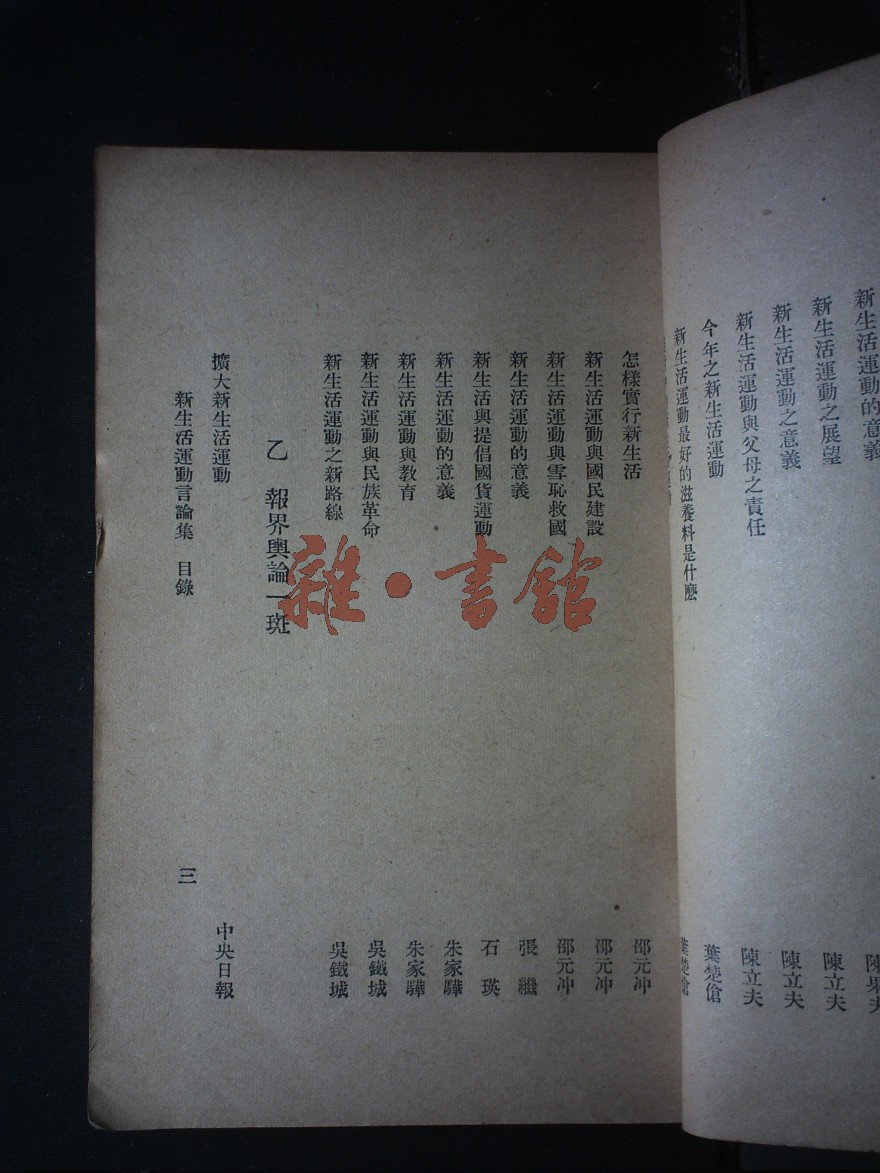 新生活運動的意義
新生活運動之展望 陳果夫
新生活運動之意義 陳立夫
新生活運動與父母之責任 陳立夫
今年之新生活運動 葉楚傖
新生活運動最好的滋養料是什麽 葉楚傖
怎樣實行新生活 邵元冲
新生活運動與國民建設 邵元冲
新生活運動與雪恥救國 邵元冲
新生活運動的意義 張繼
新生活與提倡國貨運動 石瑛
新生活運動的意義 朱家驊
新生活運動與教育 朱家驊
新生活運動與民族革命 吳鐵城
新生活運動之新路線 吳鐵城
乙 報界輿論一斑
擴大新生活運動 中央日報
新生活運動言論集 目錄 三
雜·書館